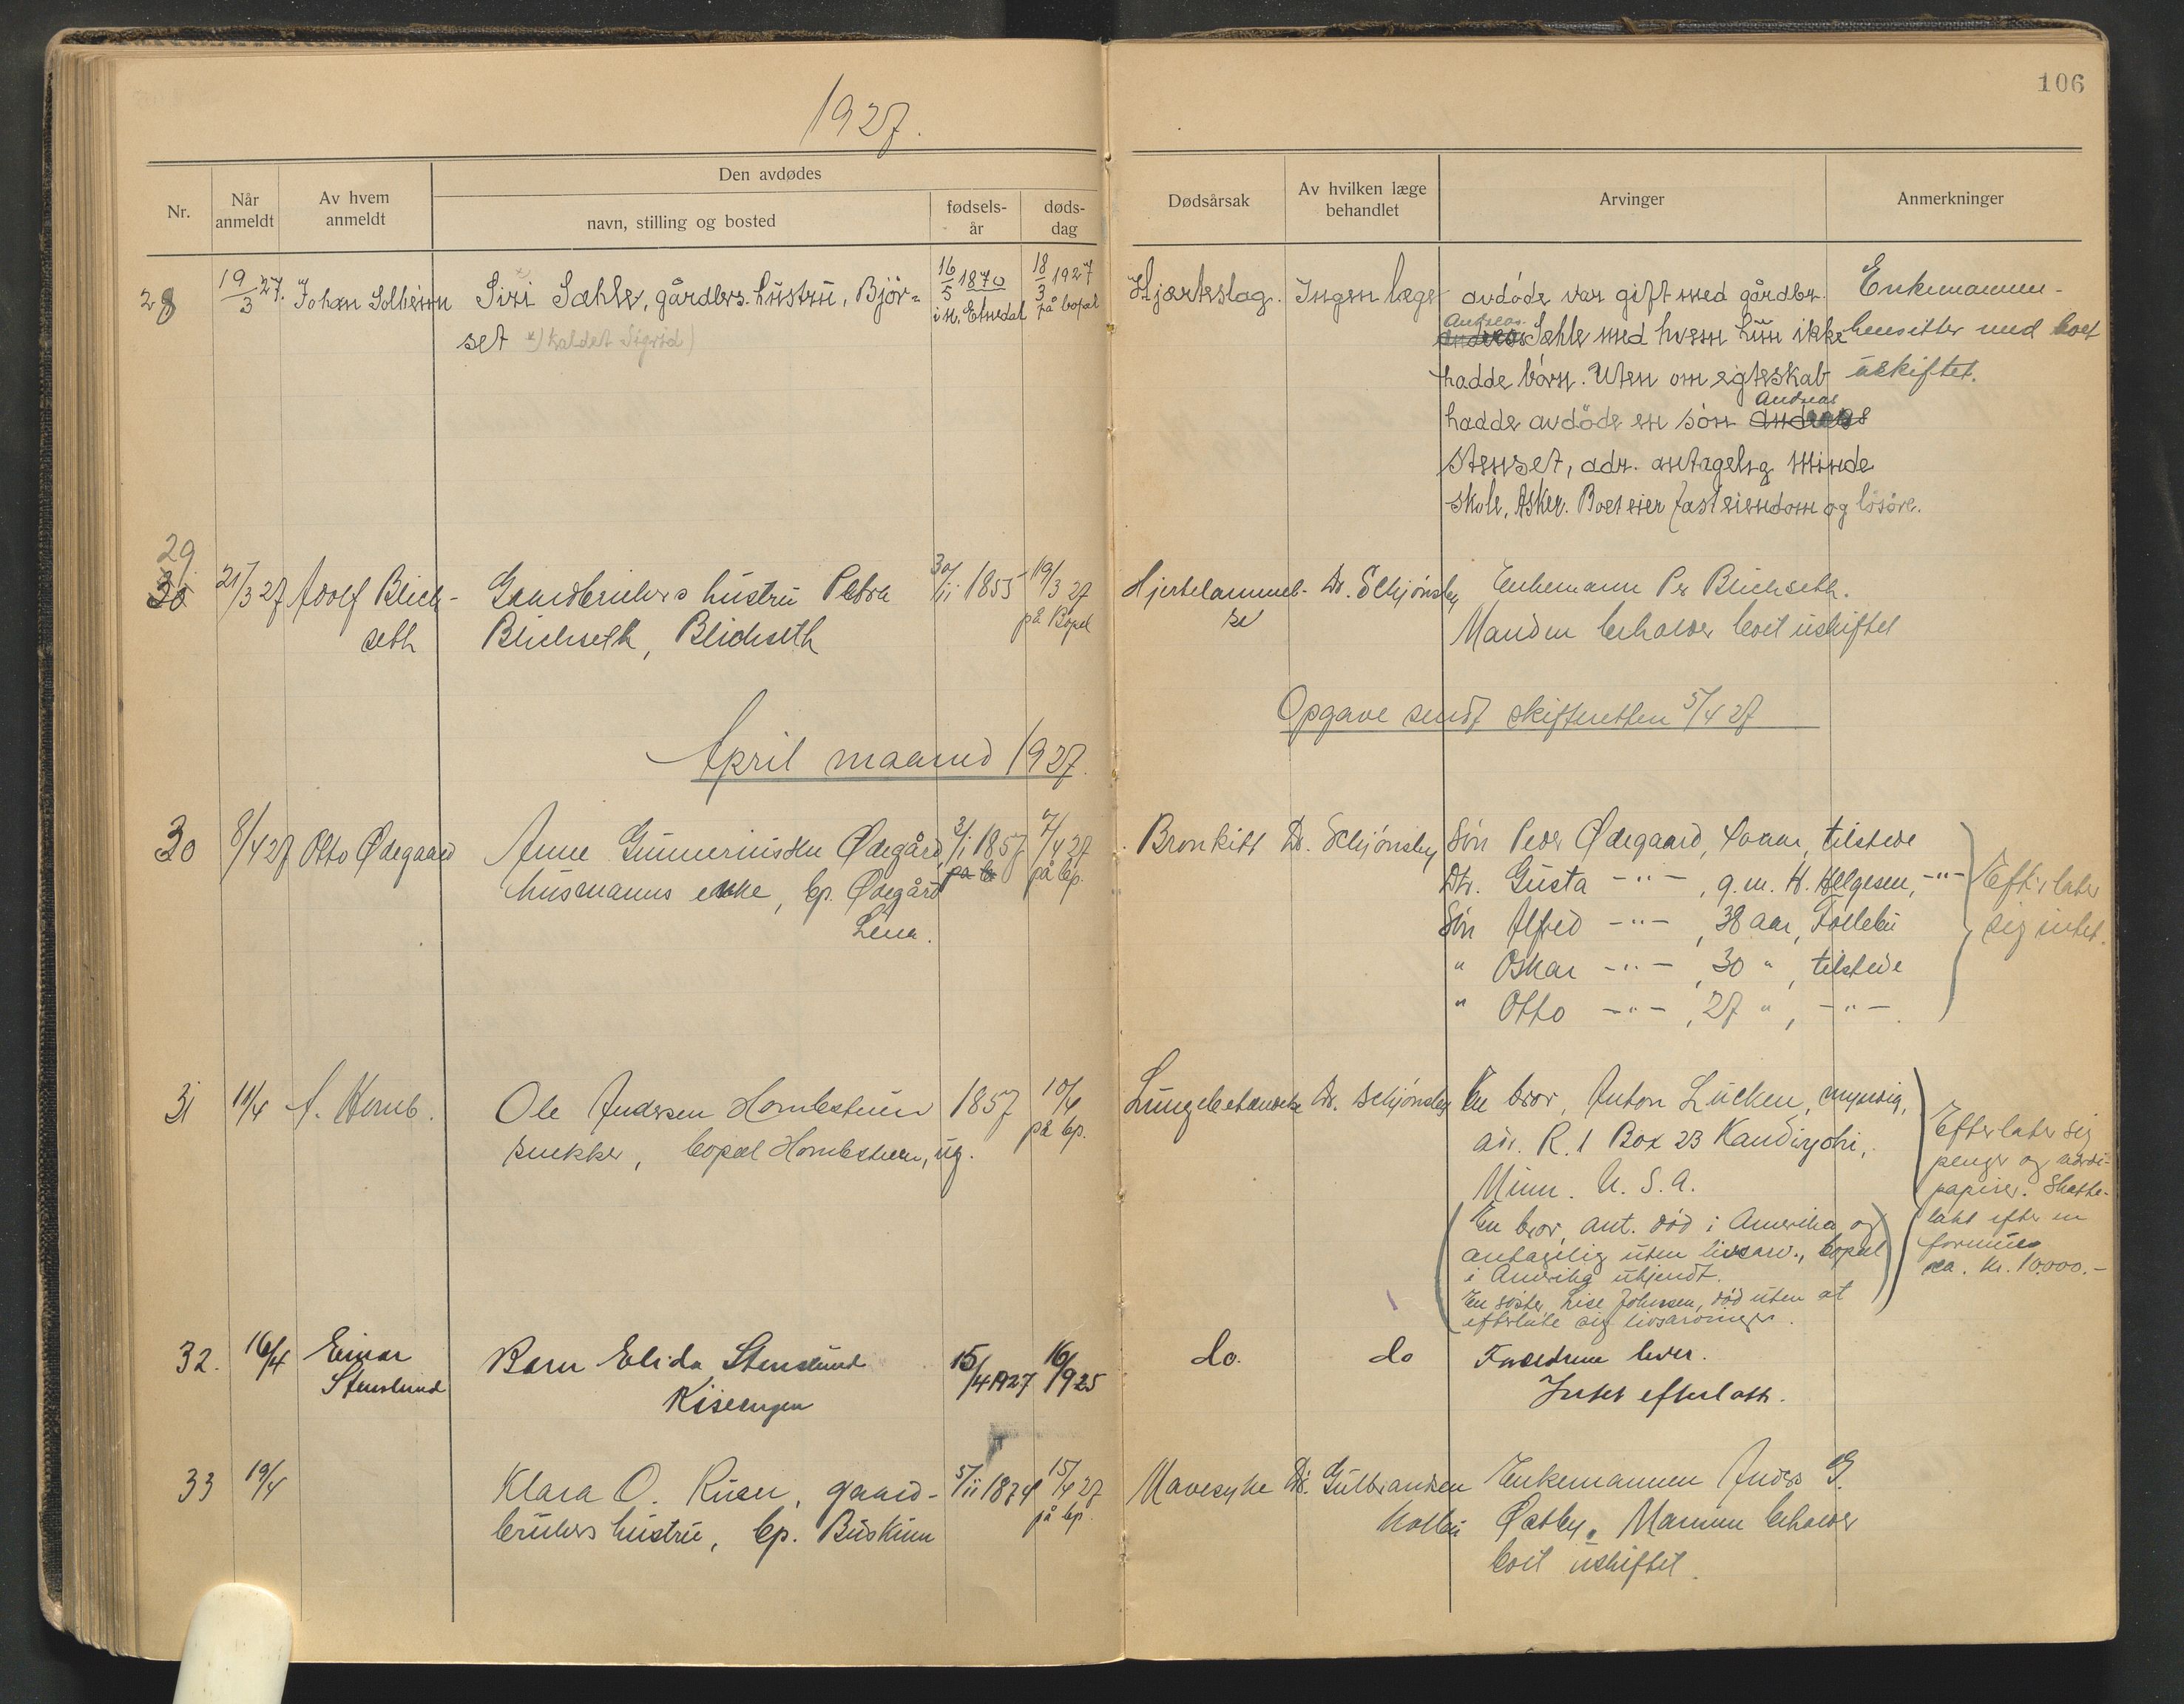 106
1927.
Nr.
Når anmeldt
Av hvem anmeldt
Den avdødes
navn, stilling og bosted
fødsels-år
døds-dag
Dødsårsak
Av hvilken læge behandlet
Arvinger
Anmerkninger
28 19/3 27. Johan Solheim Siri Sæhle, gårdbrs. hustru, Bjør-
set *) kaldet Sigrid)
16/5 1870
i N. Etnedal
18/3 1927
på bopæl
Hjærteslag. Ingen læge
avdøde var gift med gårdbr.
Andreas Sæhle med hvem hun ikke
hadde børn. Uten om egteskab
hadde avdøde en søn Andreas
Stenset, adr. antagelig Minde
skole, Asker. Boet eier fast eiendom og løsøre.
Enkemannen
hensitter med boet
uskiftet.
29
30 21/3 27 Adolf Blich-
seth
Gaardbrukers hustru Petra
Blichseth, Blichseth
30/11 1855
19/3 27
på Bopæl
Hjertelammel-
se
Dr. Schjønsby
Enkemann Per Blichseth.
Manden beholder boet uskiftet
Opgave sendt skifteretten 5/4 27
April maaned 1927.
30 8/4 27 Otto Ødegaard Anne Gunnerinsdtr Ødegård,
husmanns enke, bp. Ødegård
Lena.
3/1 1857
på b
7/4 27
på bp.
Bronkitt Dr. Schjønsby
Søn Peder Ødegaard, tilstede
Dtr. Gusta -"- , g.m. H. Helgesen, -"-
Søn Alfred -"- , 38 aar, Follebu
" Oskar -"- , 30 " , tilstede
" Otto -"- , 27 " , -"- .
Efterlater
sig intet.
31 11/4 A. Homb. Ole Andersen Hombstuen
snekker, bopæl Hombstuen, ug.
1857
10/4
på bp.
Lungebetændelse Dr. Schjønsby
En bror, Anton Lucken, myndig,
adr. R. 1 Box 23 Kandiyohi,
Minn. U. S. A.
(En bror, ant. død i Amerika og
antagelig uten livsarv., bopæl
i Amerika ukjendt.
En søster, Lise Johnsen, død uten at
efterlate sig livsarvinger.
Efterlater sig
penger og værdi-
papirer. Skatte-
takt efter en
formue
ca. kr. 10.000.-
32. 16/4 Einar
Stenslund
Barn Elida Stenslund
Kiseengen
15/4 1927
16/9 25
do. do
Forældrene lever.
Intet efterlatt.
33 19/4 Klara O. Ruen, gaard-
brukers hustru, bp. Buskum
5/11 1874
15/4 27
på bp.
Mavesyke Dr. Gulbrandsen
Kolbu
Enkemannen Anders G.
Østby. Mannen beholder
boet uskiftet.